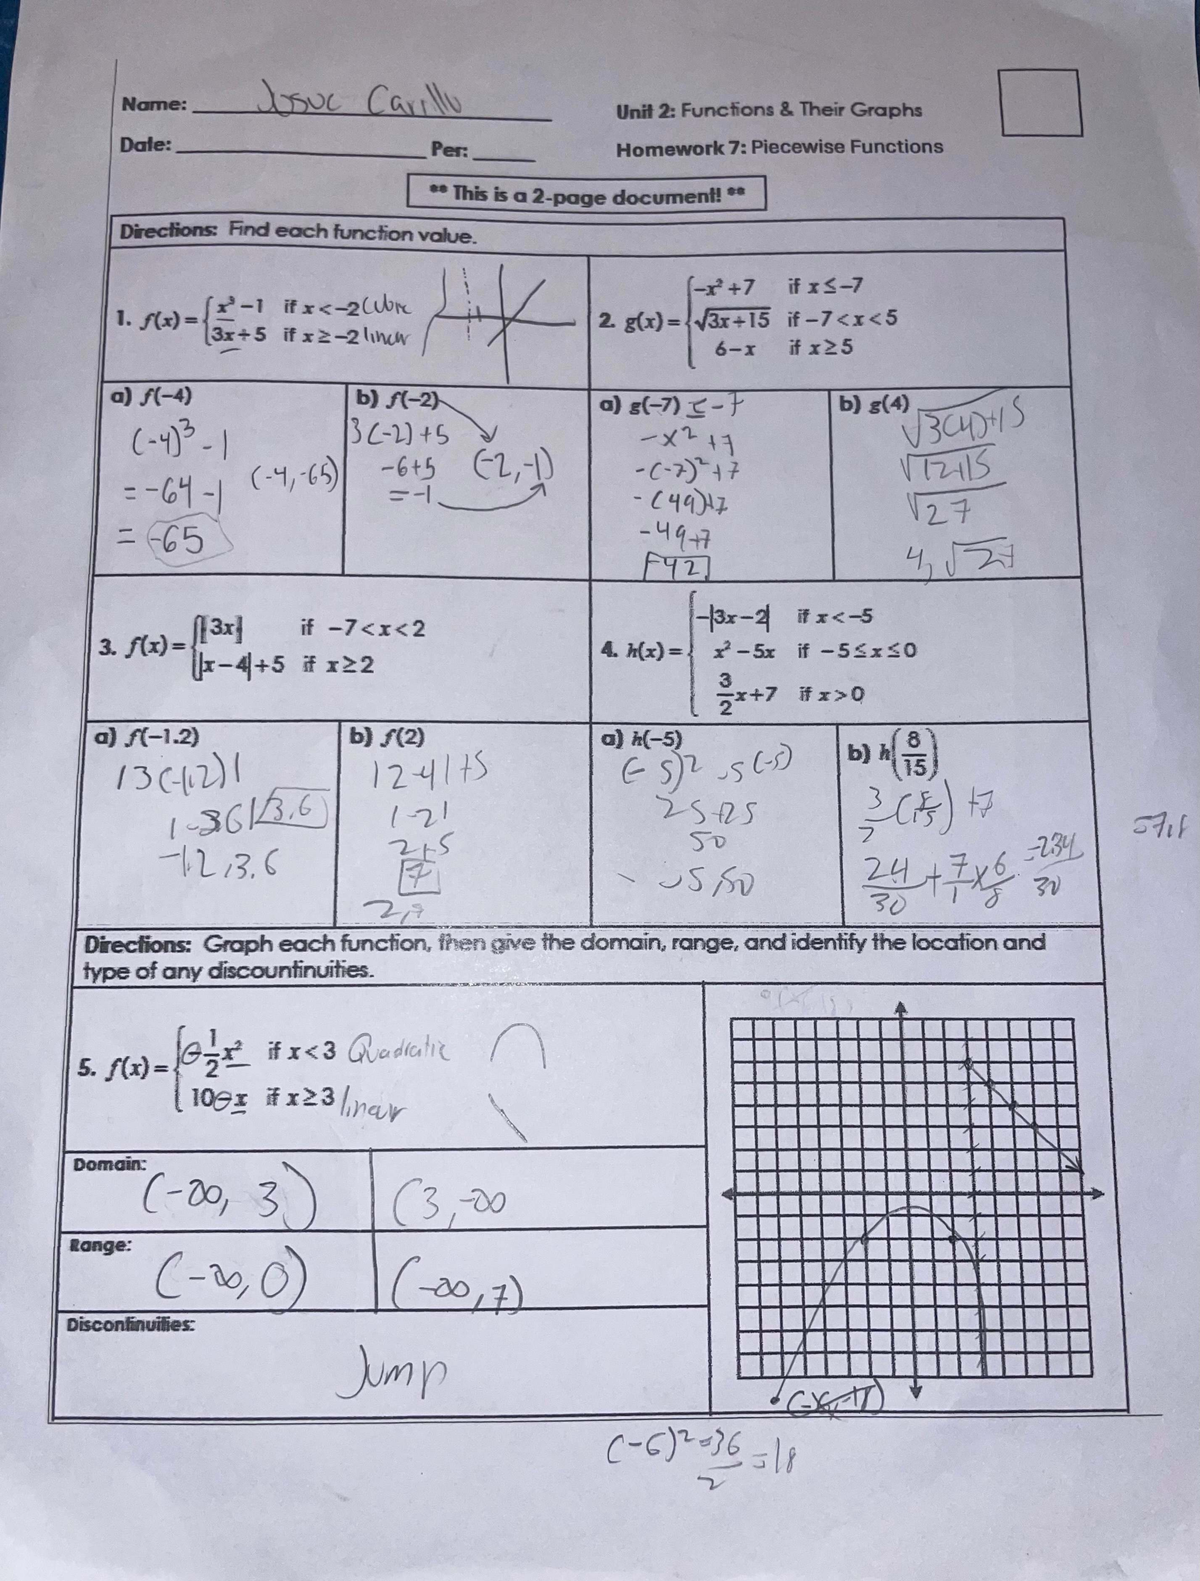 Name: Josue Carillo
Unit 2: Functions & Their Graphs
Date: Per:
Homework 7: Piecewise Functions
** This is a 2-page document! **
Directions: Find each function value.
1. f(x) = { x³ - 1 if x < -2 Cubic
3x + 5 if x ≥ -2 linear
2. g(x) = { -x² + 7 if x ≤ -7
√3x + 15 if -7 < x < 5
6 - x if x ≥ 5
a) f(-4)
(-4)³ - 1
= -64 - 1 (-4, -65)
= -65
b) f(-2)
3(-2) + 5
-6+5 (-2, -1)
= -1
a) g(-7) ≤ -7
-x² + 7
-(-7)² + 7
-(49)+7
-49+7
-42
b) g(4)
√3(4)+15
√12+15
√27
4, √27
3. f(x) = { |3x| if -7 < x < 2
|x - 4| + 5 if x ≥ 2
4. h(x) = { -|3x - 2| if x < -5
x² - 5x if -5 ≤ x ≤ 0
3/2 x + 7 if x > 0
a) f(-1.2)
|3(-1.2)|
|-3.6| 3.6
-1.2, 3.6
b) f(2)
|2-4|+5
|-2|
2+5
7
a) h(-5)
(-5)² -5(-5)
25+25
50
-5, 50
b) h(8/15)
3/2 (8/15) + 7
24/30 + 7/1 x = 234/30
Directions: Graph each function, then give the domain, range, and identify the location and
type of any discountinuities.
5. f(x) = { -1/2 x² if x < 3 Quadratic
10 - x if x ≥ 3 linear
Domain:
(-∞, 3) (3, -∞
Range:
(-∞, 0) (-∞, 7)
Discontinuities:
Jump
(-6)² = 36/2 = 18